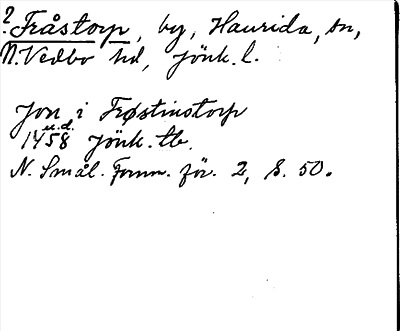 ?
Fråstorp, by, Haurida, sn,
N. Vedbo hd, Jönk. l.
Jon i Frøstinstorp
u.d.
1458 Jönk. tb.
N. Smål. Fornm. för. 2, S. 50.